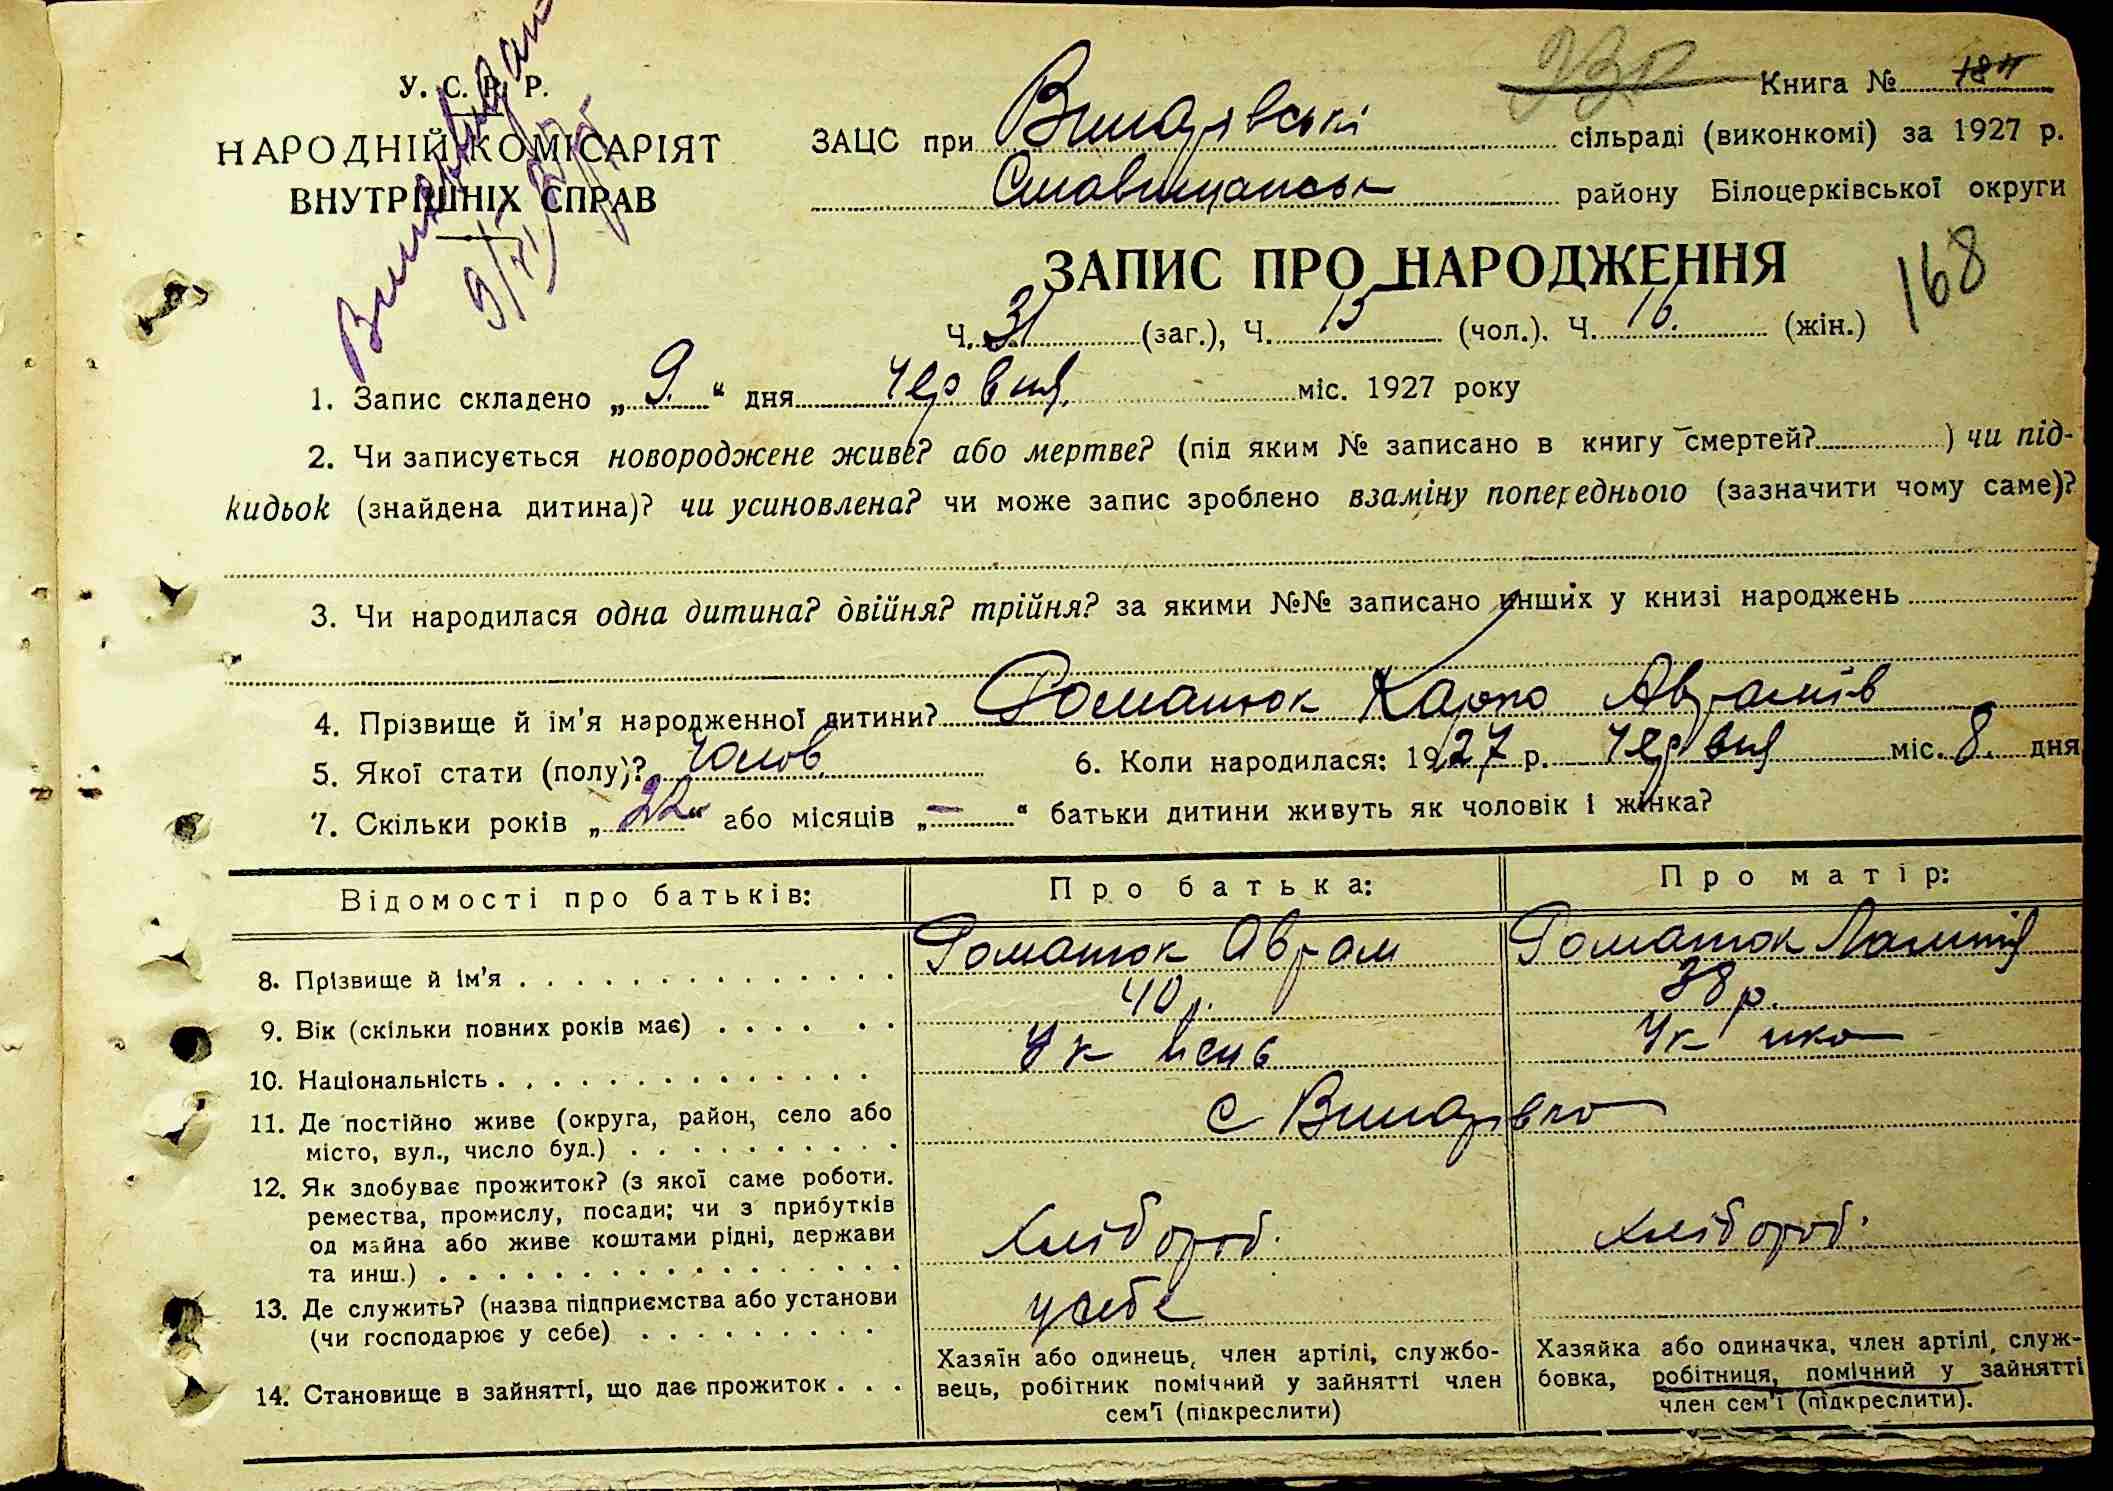 У. С. Р. Р.
НАРОДНІЙ КОМІСАРІЯТ
ВНУТРІШНІХ СПРАВ
Книга №
ЗАЦС при Винарівські сільраді (виконкомі) за 1927 р.
Ставищанськ району Білоцерківської округи
ЗАПИС ПРО НАРОДЖЕННЯ
168
Ч. 31 (заг.), Ч. 15 (чол.). Ч. 16. (жін.)
1. Запис складено „ 9. “ дня червня. міс. 1927 року
2. Чи записується новороджене живе? або мертве? (під яким № записано в книгу смертей? ) чи під-
кидьок (знайдена дитина)? чи усиновлена? чи може запис зроблено взаміну попереднього (зазначити чому саме)?
3. Чи народилася одна дитина? двійня? трійня? за якими №№ записано инших у книзі народжень
4. Прізвище й ім'я народженної дитини? Романюк Карпо Аврамів
5. Якої стати (полу)? чолов 6. Коли народилася: 1927 р. червня міс. 8. дня
7. Скільки років „ 22 “ або місяців „ — “ батьки дитини живуть як чоловік і жінка?
Відомості про батьків: Про батька: Про матір:
8. Прізвище й ім'я Романюк Аврам Романюк
9. Вік (скільки повних років має) 40 р. 38 р.
10. Національність Ук їнець Ук нка
11. Де постійно живе (округа, район, село або
місто, вул., число буд.) с Винарівка
12. Як здобуває прожиток? (з якої саме роботи.
ремества, промислу, посади; чи з прибутків
од майна або живе коштами рідні, держави
та инш.) хлібороб. хлібороб.
13. Де служить? (назва підприємства або установи
(чи господарює у себе) у себе
14. Становище в зайнятті, що дає прожиток
Хазяїн або одинець, член артілі, службо-
вець, робітник помічний у зайнятті член
сем'ї (підкреслити)
Хазяйка або одиначка, член артілі, служ-
бовка, робітниця, помічний у зайнятті
член сем'ї (підкреслити).